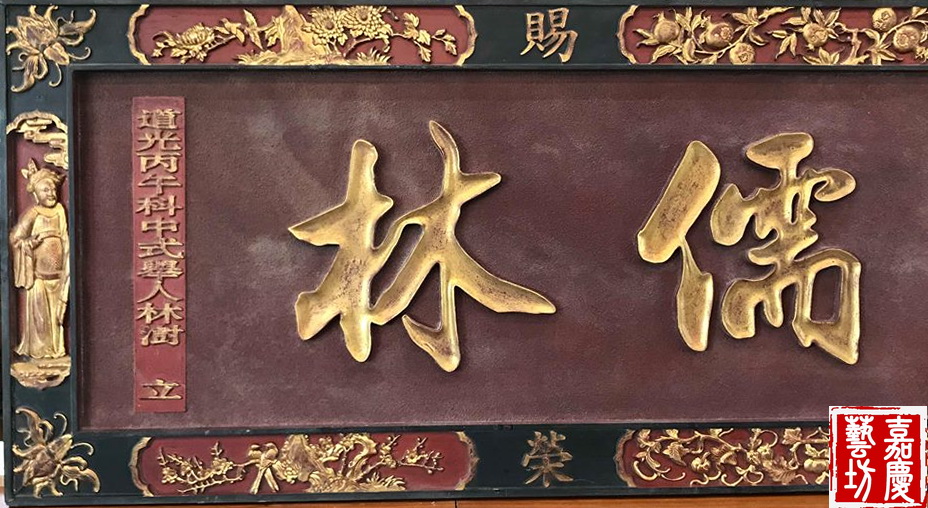 賜
儒林
道光丙午科中式舉人林澍 立
榮
嘉慶
藝坊